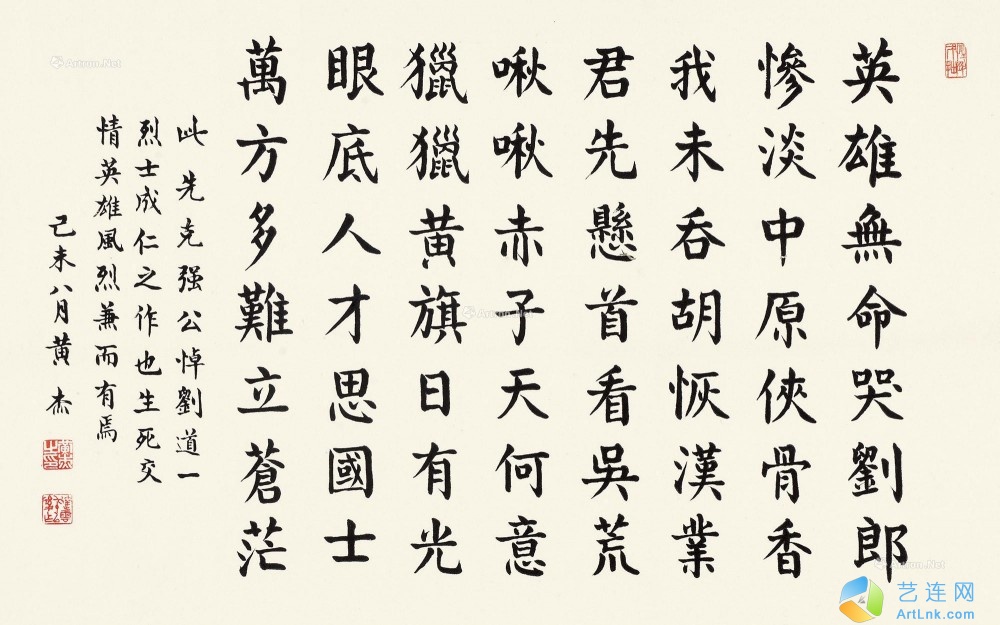 英雄無命哭劉郎
慘淡中原俠骨香
我未吞胡恢漢業
君先懸首看吳荒
啾啾赤子天何意
獵獵黃旗日有光
眼底人才思國士
萬方多難立蒼茫
此先克强公悼劉道一
烈士成仁之作也生死交
情英雄風烈兼而有焉
己未八月黄杰
Artron.Net
Artron.Net
Artron.Net
艺连网
ArtLnk.com